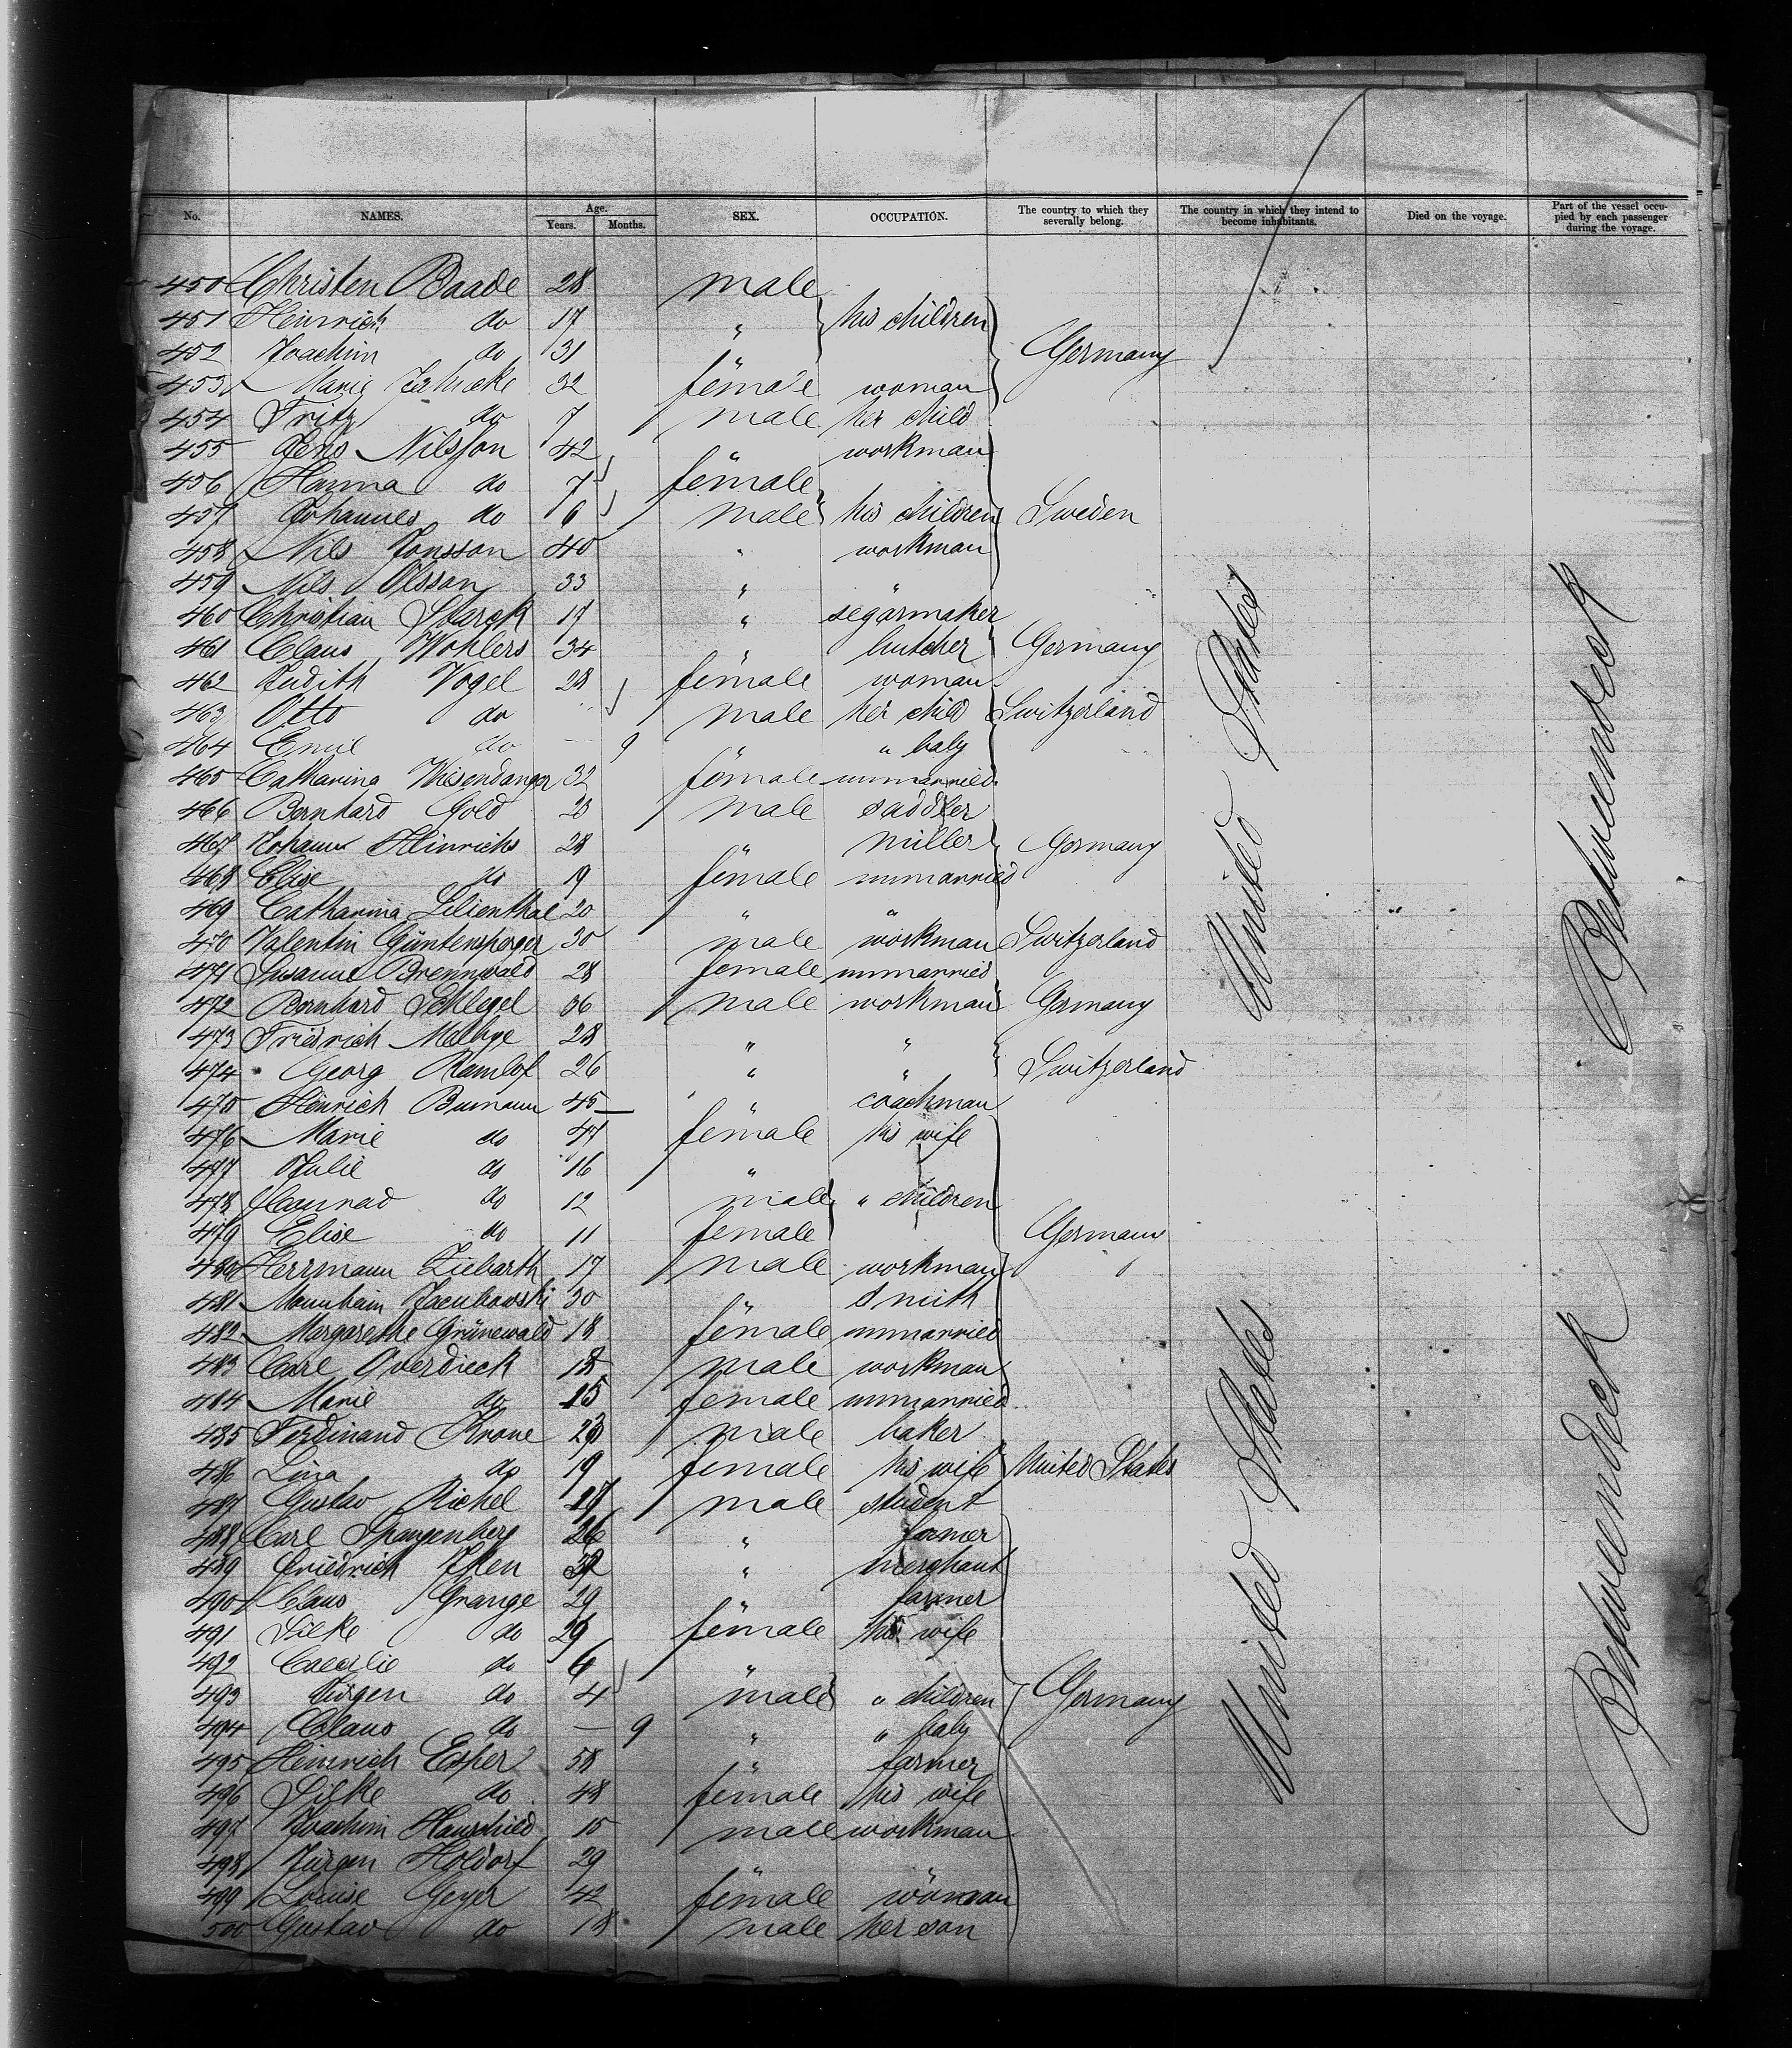 No. NAMES. Age. Years. Months. SEX. OCCUPATION. The country to which they severally belong. The country in which they intend to become inhabitants. Died on the voyage. Part of the vessel occupied by each passenger during the voyage.
450 Christen Baade 28 male
451 Heinrich do 17 " his children
452 Joachim do 31 " Germany
453 Marie 32 female woman
454 Fritz do 7 male her child
455 Jens Nilsson 42 " workman
456 Hanna do 7 female
457 Johannes do 6 male his children Sweden
458 Nils Jonsson 40 " workman
459 Nils Olsson 33 " "
460 Christian Starck 17 " segarmaker
461 Claus Wohlers 34 " butcher Germany
462 Judith Vogel 28 female woman
463 Otto do male her child Switzerland
464 Emil do — 9 " " baby
465 Catharina Wiesendanger 32 female unmarried
466 Bernhard Gold 23 male saddler
467 Johann Heinrichs 28 " miller Germany
468 Elise do 19 female unmarried
469 Catharina Lilienthal 20 " "
470 Valentin Güntensperger 30 male workman Switzerland
471 Susanne Brennwald 28 female unmarried
472 Bernhard Schlegel 36 male workman Germany
473 Friedrich 28 " "
474 Georg Ramlof 26 " " Switzerland
475 Heinrich Bumann 45 " coachman
476 Marie do 47 female his wife
477 Julie do 16 "
478 Conrad do 12 male " children
479 Elise do 11 female Germany
480 Herrmann Ziebarth 17 male workman
481 Jacubowski 30 " smith
482 Margarethe Grünewald 18 female unmarried
483 Carl Overdieck 18 male workman
484 Marie do 15 female unmarried
485 Ferdinand Krone 23 male baker
486 Lina do 19 female his wife United States
487 Gustav Richel male student
488 Carl Spangenberg 26 " farmer
489 Friedrich Iken " merchant
490 Claus Grange 29 " farmer
491 Silke do 29 female his wife
492 Caecilie do 6 "
493 Jürgen do 4 male " children Germany
494 Claus do — 9 " " baby
495 Heinrich Esper 58 " farmer
496 Silke do 48 female his wife
497 Joachim Hauschild 15 male workman
498 Jürgen Holdorf 29 " "
499 Louise Geyer 42 female woman
500 Gustav do 18 male her son
United States
United States
Betweendeck
Betweendeck